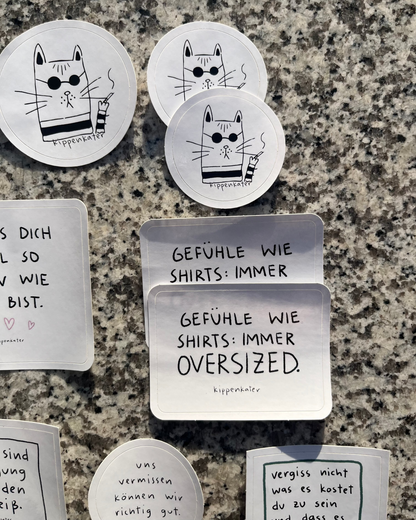 kippenkater
kippenkater
S DICH
L SO
WIE
BIST.
GEFÜHLE WIE
SHIRTS: IMMER
GEFÜHLE WIE
SHIRTS: IMMER
OVERSIZED.
kippenkater
sind
den
uns
vermissen
können wir
richtig gut.
vergiss nicht
was es kostet
du zu sein
und dass es